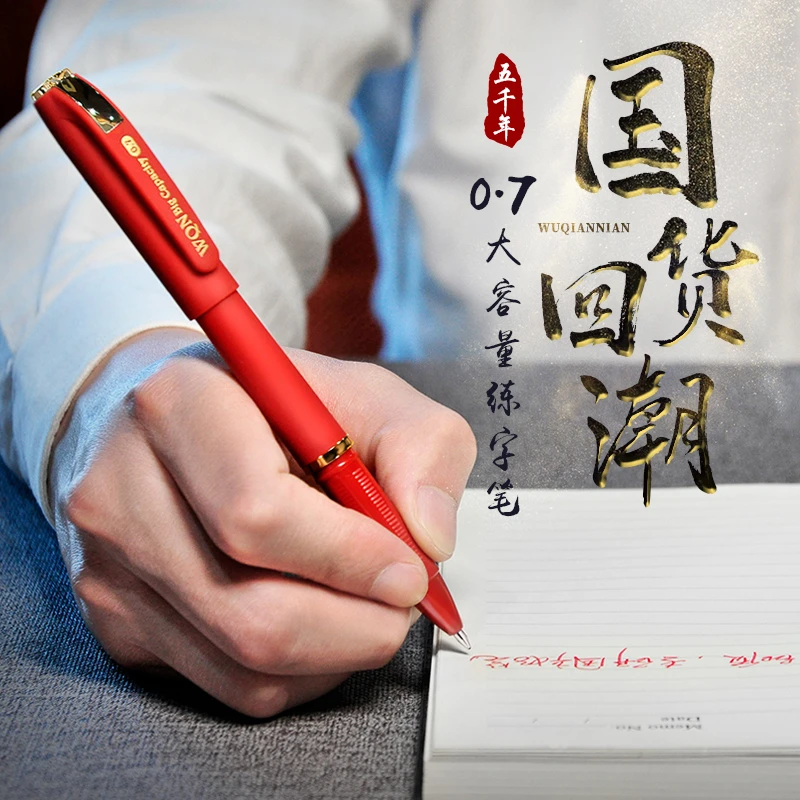 五千年
国货回潮
WUQIANNIAN
0.7
大容量练字笔
WQN Big Capacity 0.7
Memo No
Date